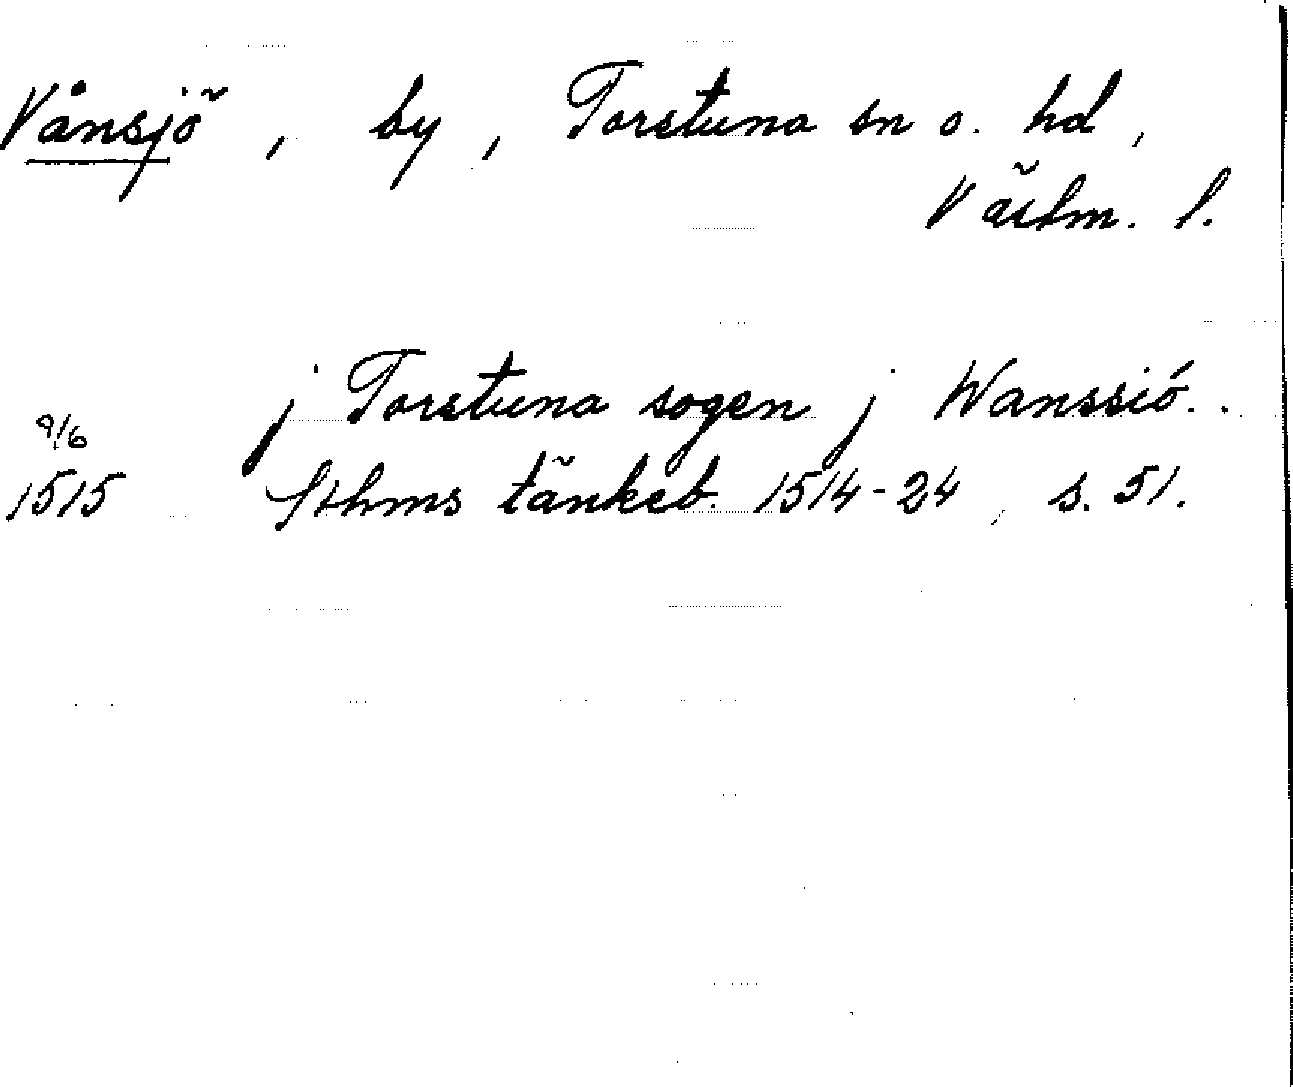 Vånsjö, by, Torstuna sn o. hd,
Västm. l.
j Torstuna sogen j Wanssió..
9/6
1515 Sthms tänkeb. 1514-24, s. 51.